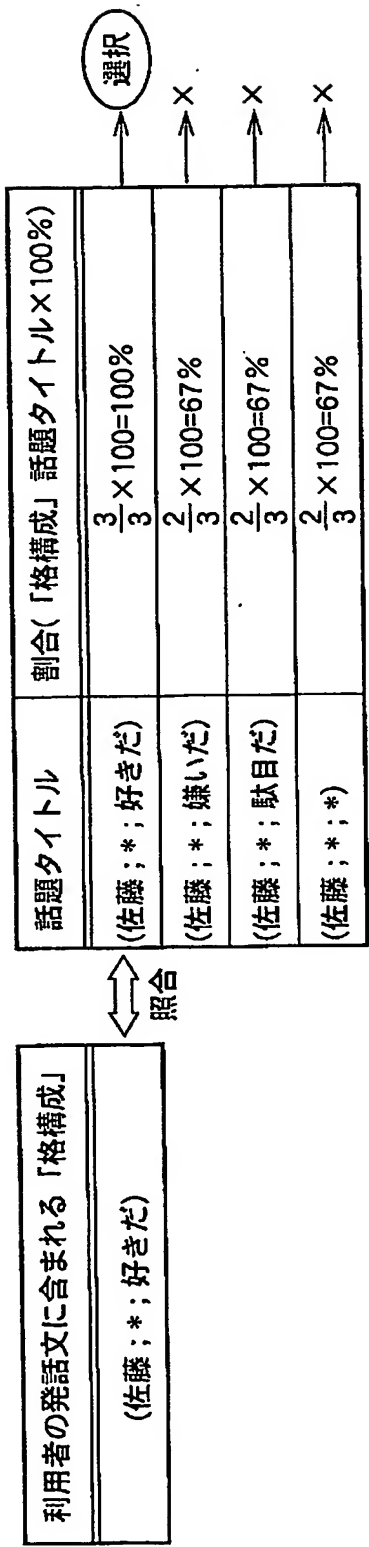 利用者の発話文に含まれる「格構成」
(佐藤;*;好きだ)
照合
話題タイトル 割合(「格構成」話題タイトル×100%)
(佐藤;*;好きだ) 3/3×100=100% 選択
(佐藤;*;嫌いだ) 2/3×100=67% ×
(佐藤;*;駄目だ) 2/3×100=67% ×
(佐藤;*;*) 2/3×100=67% ×